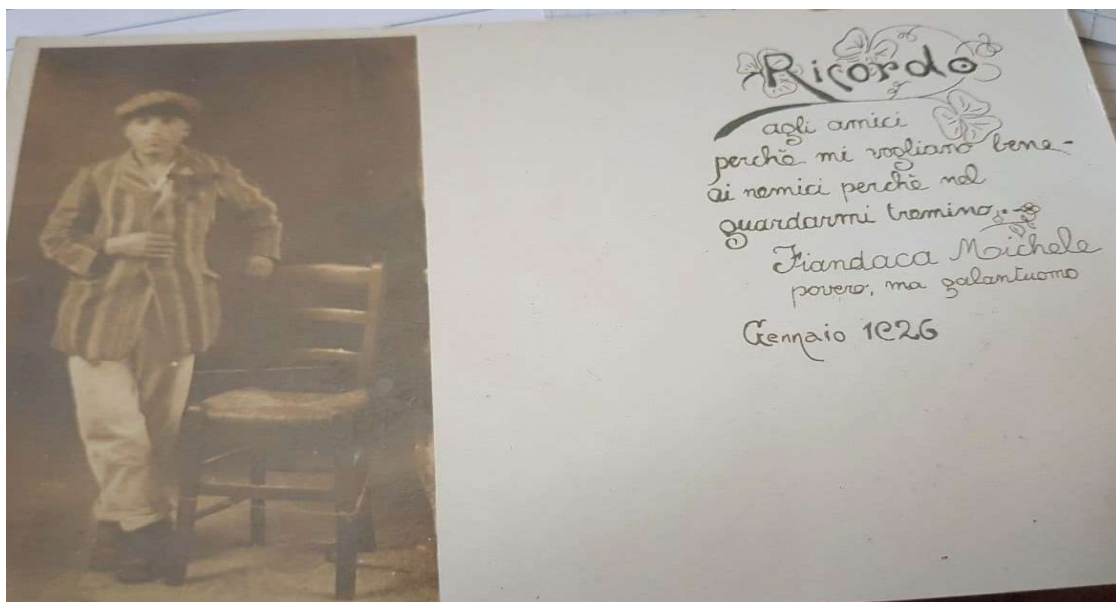 Ricordo
agli amici
perchè mi vogliano bene-
ai nemici perchè nel
guardarmi tremino.
Fiandaca Michele
povero, ma galantuomo
Gennaio 1926